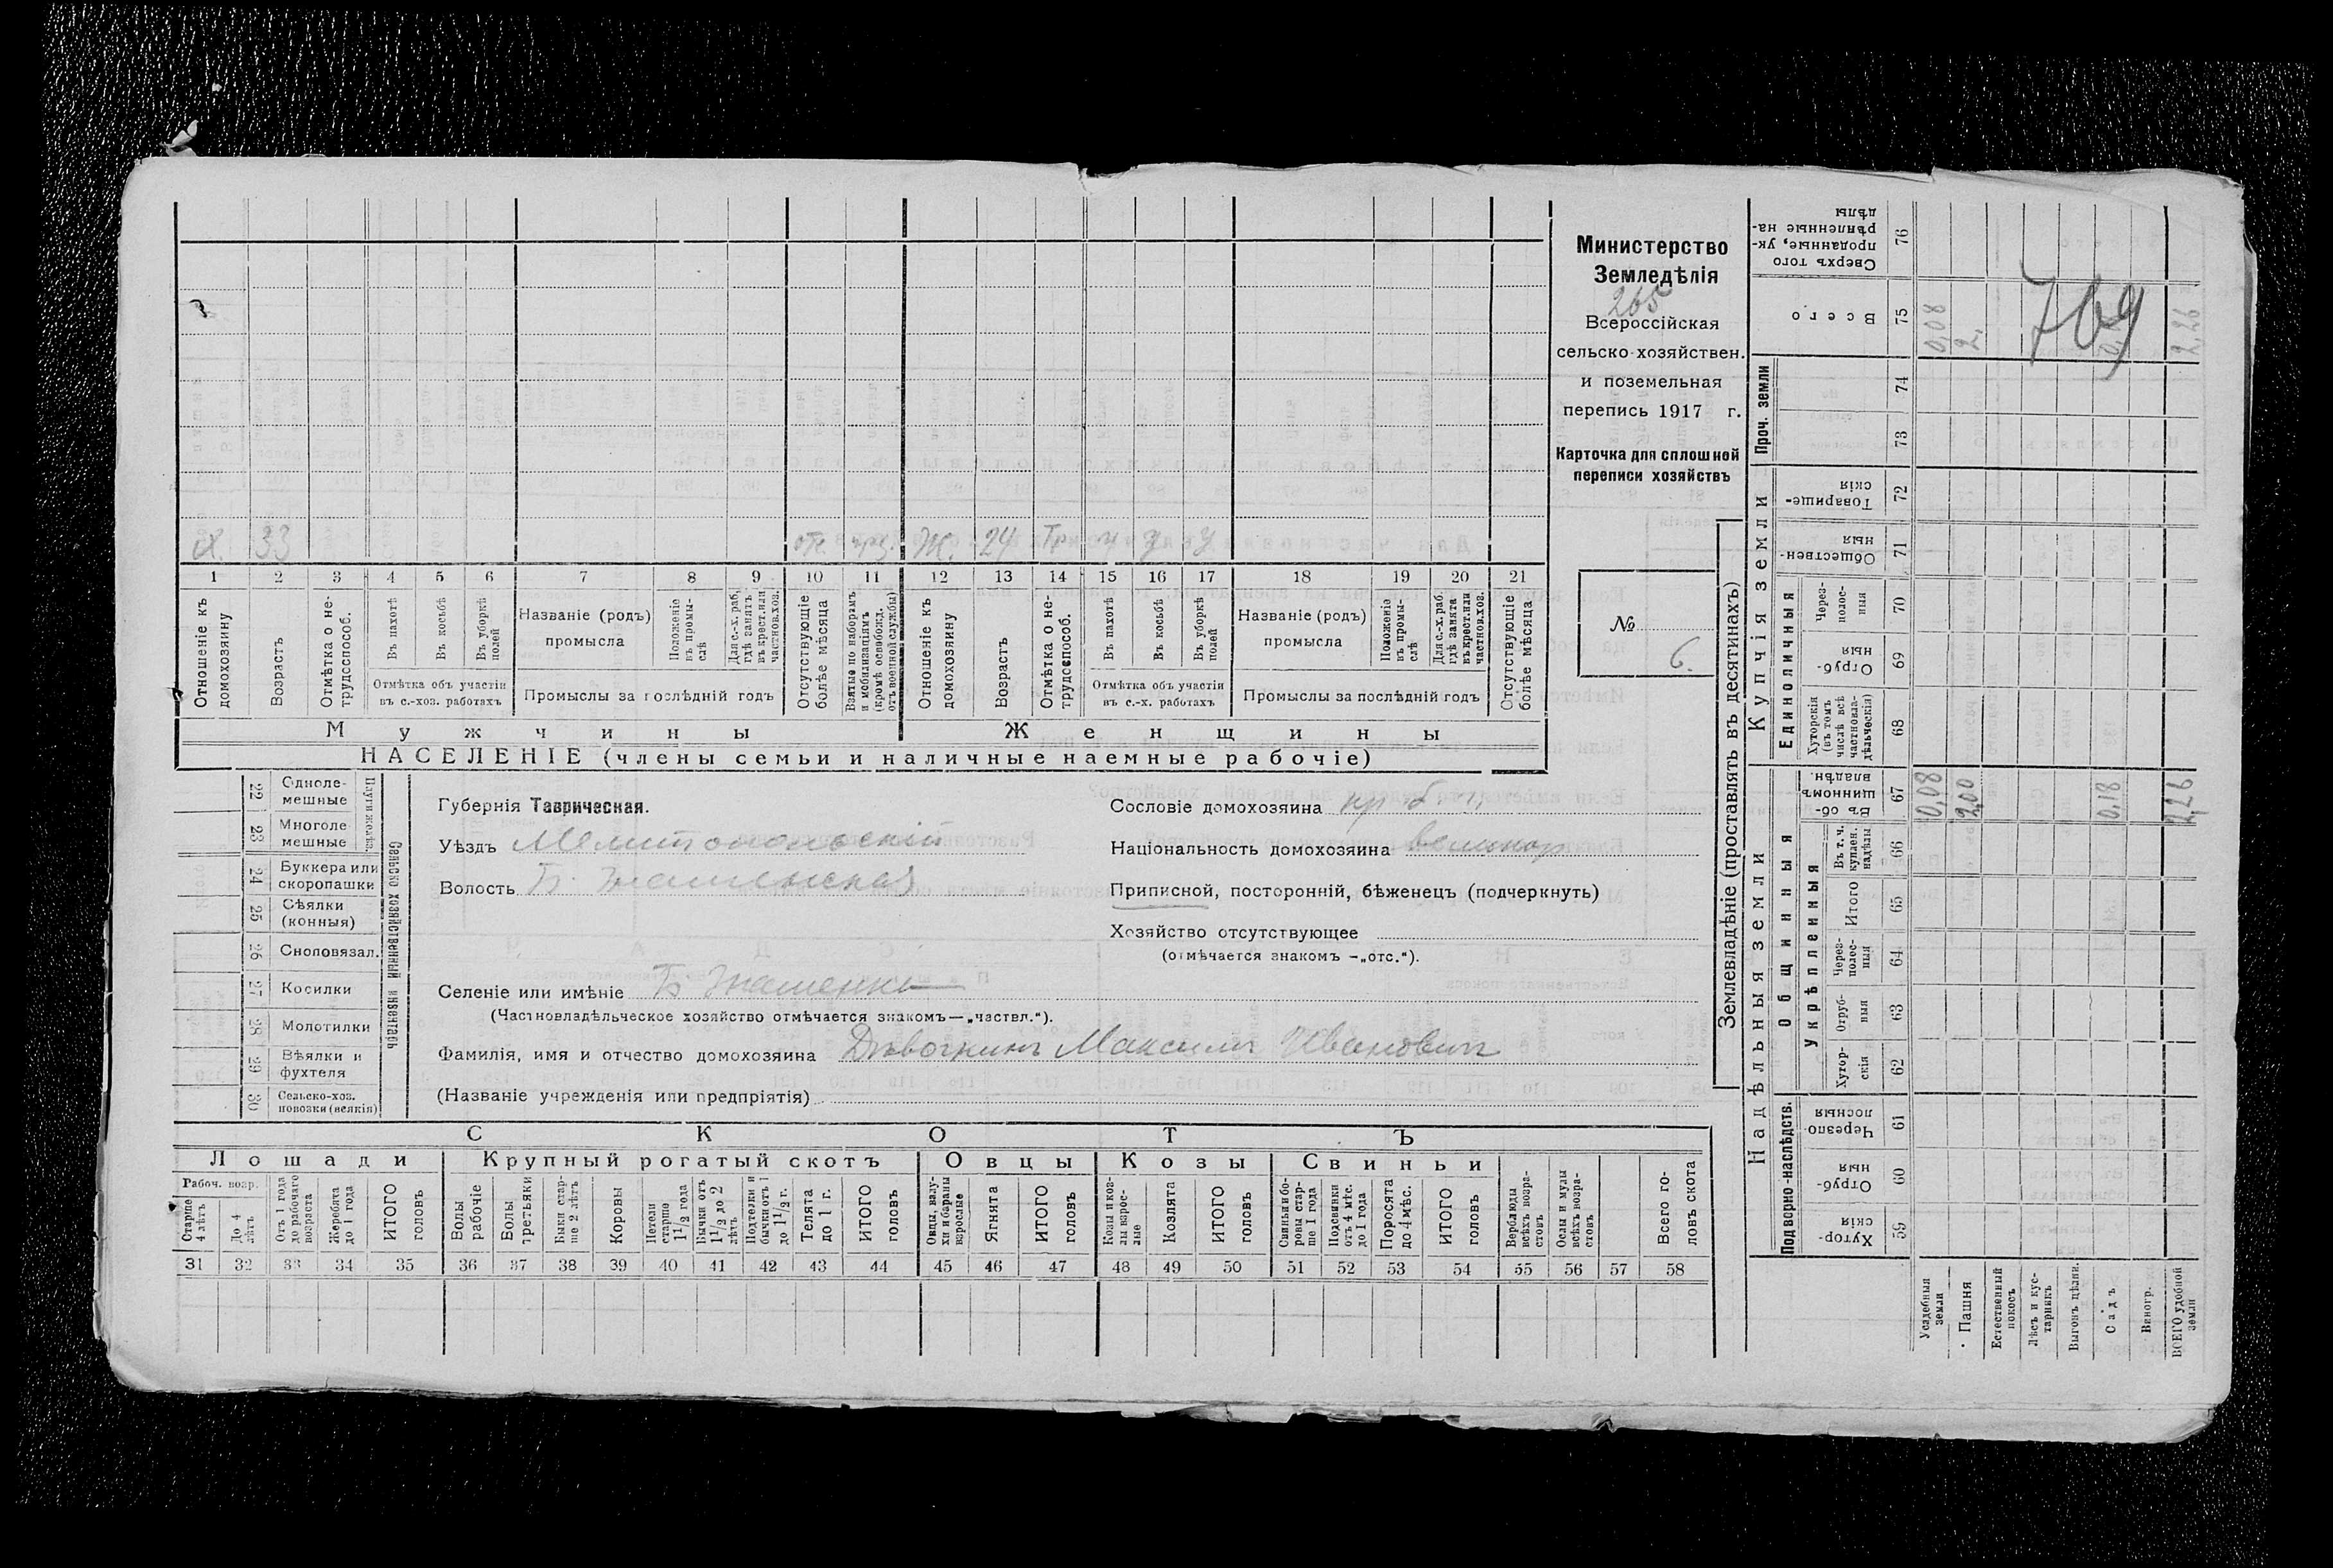 Министерство
Земледѣлія
265
Всероссійская
сельско-хозяйствен.
и поземельная
перепись 1917 г.
Карточка для сплошной
переписи хозяйствъ
№
6.
769
Х. 33 отс. Ж. 24 Тр У У У
1 2 3 4 5 6 7 8 9 10 11 12 13 14 15 16 17 18 19 20 21
Отношеніе къ домохозяину
Возрастъ
Отмѣтка о не-трудоспособ.
Въ пахотѣ
Въ косьбѣ
Въ уборкѣ полей
Отмѣтка объ участіи въ с.-хоз. работахъ
Названіе (родъ) промысла
Положеніе въ промы-слѣ
Для с.-х. раб. гдѣ занятъ въ крест. или частнов. хоз.
Промыслы за послѣдній годъ
Отсутствующіе болѣе мѣсяца
Взятые по наборамъ и мобилизаціямъ (кромѣ освобожд. отъ военной службы)
Отношеніе къ домохозяину
Возрастъ
Отмѣтка о не-трудоспособ.
Въ пахотѣ
Въ косьбѣ
Въ уборкѣ полей
Отмѣтка объ участіи въ с.-х. работахъ
Названіе (родъ) промысла
Положеніе въ промы-слѣ
Для с.-х. раб. гдѣ занята въ крест. или частнов. хоз.
Промыслы за послѣдній годъ
Отсутствующіе болѣе мѣсяца
Мужчины Женщины
НАСЕЛЕНІЕ (члены семьи и наличные наемные рабочіе)
22 Одноле-мешные
23 Многоле мешные
Плуги желѣз.
24 Буккера или скоропашки
25 Сѣялки (конныя)
26 Сноповязал.
27 Косилки
28 Молотилки
29 Вѣялки и фухтеля
30 Сельско-хоз. повозки (всякія)
Сельско хозяйственный инвентарь
Губернія Таврическая.
Уѣздъ Мелитопольскій
Волость Б. Знаменская
Селеніе или имѣніе Б Знаменка
(Частновладѣльческое хозяйство отмѣчается знакомъ—„частвл.“).
Фамилія, имя и отчество домохозяина Дѣвочкинъ Максимъ Ивановичъ
(Названіе учрежденія или предпріятія)
Сословіе домохозяина
Національность домохозяина великор
Приписной, посторонній, бѣженецъ (подчеркнуть)
Хозяйство отсутствующее
(отмѣчается знакомъ —„отс.“).
СКОТЪ
Лошади Крупный рогатый скотъ Овцы Козы Свиньи
Рабоч. возр.
Старше 4 лѣтъ
До 4 лѣтъ
Отъ 1 года до рабочаго возраста
Жеребята до 1 года
ИТОГО головъ
Волы рабочіе
Волы третьяки
Быки стар-ше 2 лѣтъ
Коровы
Нетели старше 1½ года
Бычки отъ 1½ до 2 лѣтъ
Подтелки и бычки отъ 1 до 1½ г.
Телята до 1 г.
ИТОГО головъ
Овцы, валу-хи и бараны взрослые
Ягнята
ИТОГО головъ
Козы и коз-лы взрос-лые
Козлята
ИТОГО головъ
Свиньи и бо-ровы стар-ше 1 года
Подсвинки отъ 4 мѣс. до 1 года
Поросята до 4 мѣс.
ИТОГО головъ
Верблюды всѣхъ возра-стовъ
Ослы и мулы всѣхъ возра-стовъ
Всего го-ловъ скота
31 32 33 34 35 36 37 38 39 40 41 42 43 44 45 46 47 48 49 50 51 52 53 54 55 56 57 58
Землевладѣніе (проставлять въ десятинахъ)
Сверхъ того проданные, ук-рѣпленные на-дѣлы 76
Всего 75 0,08 2. 2,26
Проч. земли 74 73
Купчія земли
Товарище-скія 72
Обществен-ныя 71
Единоличныя
Через-полос-ныя 70
Отруб-ныя 69
Хуторскія (въ томъ числѣ всѣ частновла-дѣльческія) 68
Надѣльныя земли
Общинныя
Въ об-щинномъ владѣн. 67 0,08 2,00 0,18 2,26
Укрѣпленныя
Въ т. ч. куплен. надѣлы 66
Итого 65
Через-полос-ныя 64
Отруб-ныя 63
Хутор-скія 62
Подворно-наслѣдств.
Черезпо-лосныя 61
Отруб-ныя 60
Хутор-скія 59
Усадебныя земли
Пашня
Естественный покосъ
Лѣсъ и кус-тарникъ
Выгонъ цѣлин.
Садъ
Виногр.
ВСЕГО удобной земли